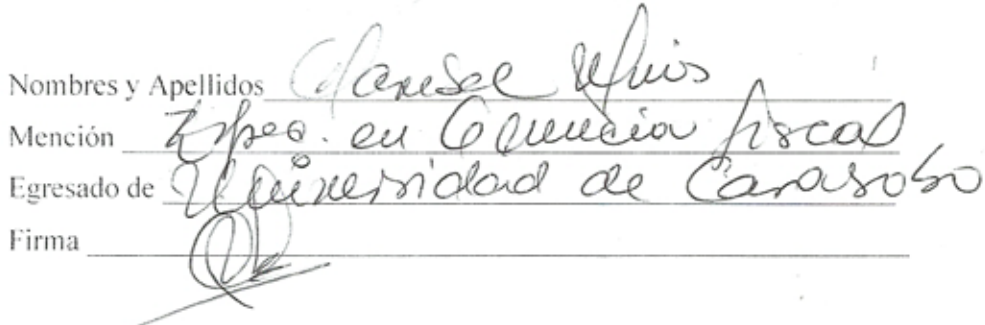 Nombres y Apellidos
Mención Espec. en Gerencia fiscal
Egresado de Universidad de Carabobo
Firma